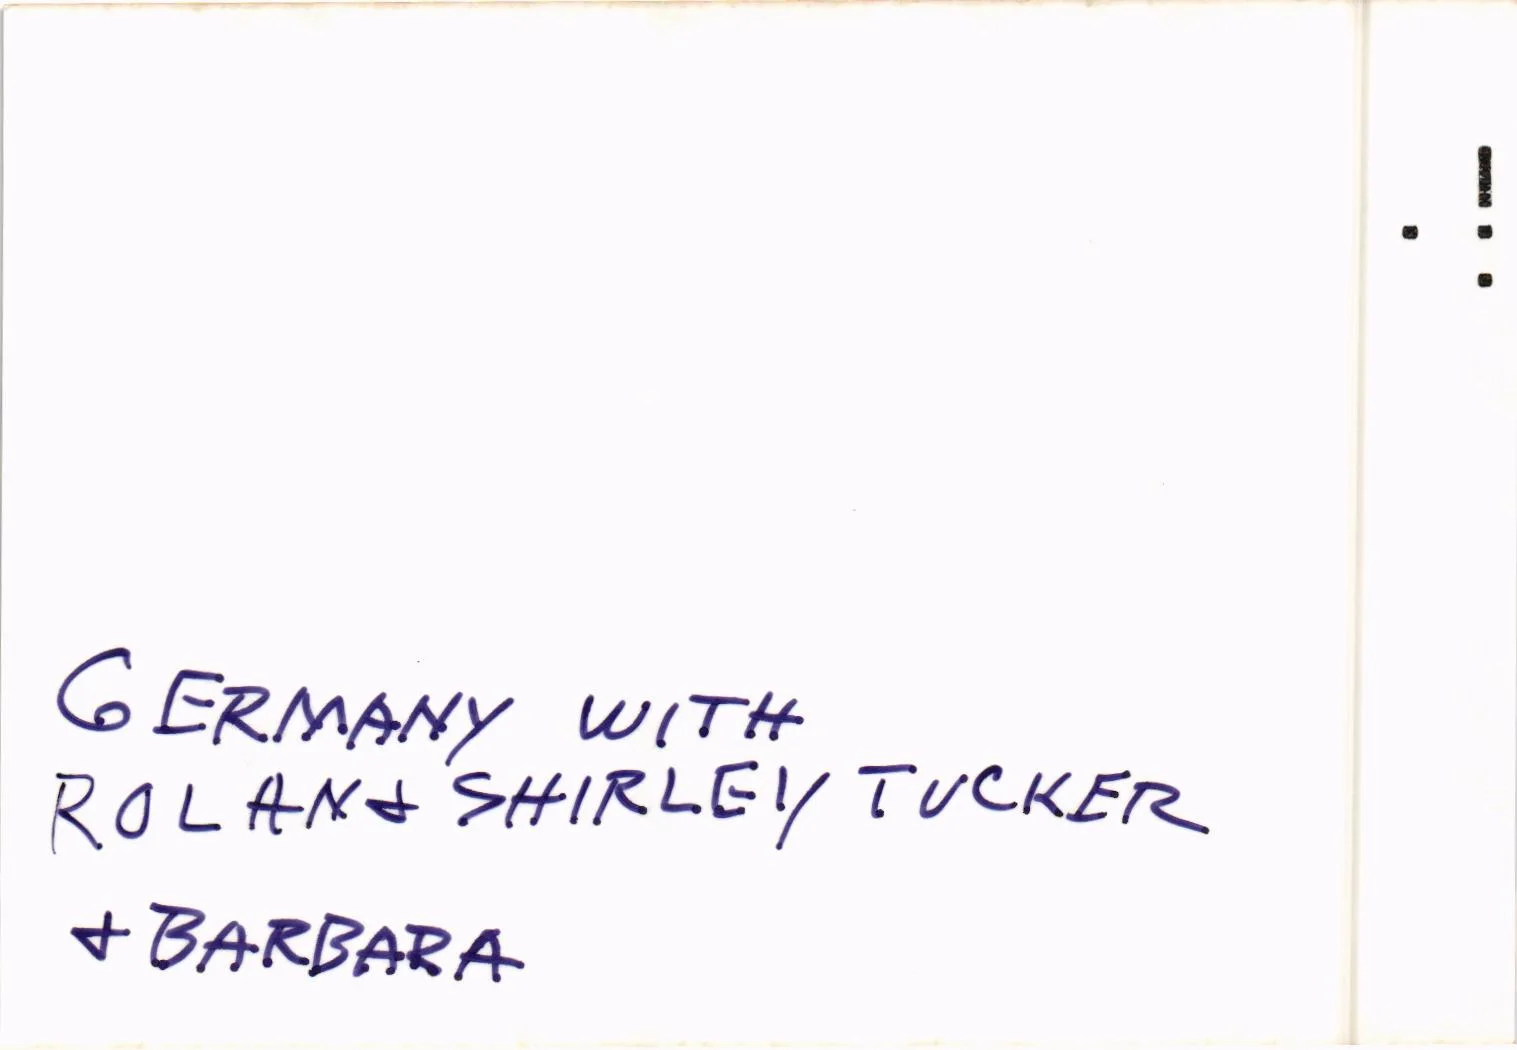 GERMANY WITH
ROLAN & SHIRLEY TUCKER
& BARBARA